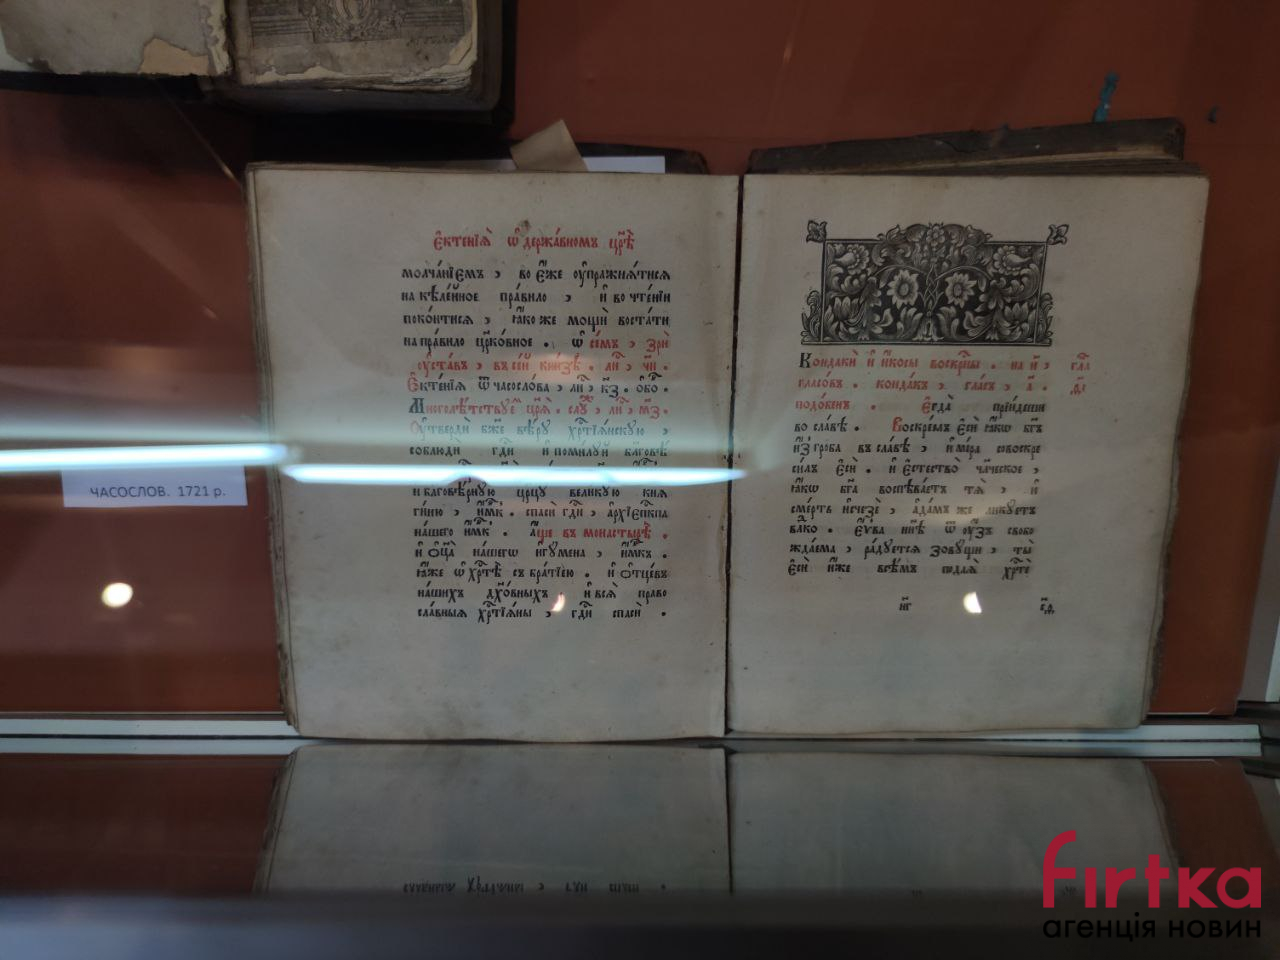 Є҆ктенїѧ̀ ѡ҆ держа́вномъ цр҃ѣ̀
молча́нїемъ , во є҆́же оу҆пражнѧ́тисѧ
на кѣле́йное пра́вило , и҆ во чте́нїи
поко́итисѧ , ꙗ҆́коже мощи̑ воста́ти
на правило цр҃ко́вное . ѡ҆ се́мъ , зрѝ
оу҆ста́въ , въ се́й кни́зѣ . ли҆ , чи҃ .
Є҆ктенїѧ ѿ часосло́ва , ли҆ , к҃з .
Утвердѝ бж҃е вѣ́ру хрⷭ҇тїѧ́нскую ,
соблюди̑ гдⷭ҇и и҆ поми́луй
и҆ блговѣ́рную цр҃цу вели́кую кнѧ
ги́ню , и҆́мк . спасѝ гдⷭ҇и , а҆рхїепⷭ҇кпа
на́шего и҆́мк . а҆́ще въ монастырѣ̀ .
и҆ ѻ҆ц҃а̀ на́шегѡ и҆гу́мена , и҆́мкъ .
ꙗ҆́же ѡ҆ хрⷭ҇тѣ̀ съ бра́тїею . и҆ ѻ҆тцє́въ
на́шихъ дх҃о́вныхъ , и҆ всѧ̀ право
сла́вныѧ хрⷭ҇тїѧ́ны , гдⷭ҇и спасѝ .
Кондакѝ и҆ и҆́косы воскрⷭ҇ны . на и҃ , гла
гласо́въ . конда́къ , гла́съ , а҃ .
подо́бенъ . Є҆гда̀ прїи́деши
во сла́вѣ . Воскре́мъ є҆сѝ ꙗ҆́кѡ бг҃ъ
и҆з̾ гро́ба въ сла́вѣ , и҆ мі́ра совоскре
си́лъ є҆сѝ . и҆ є҆стество̀ чл҃ческое ,
ꙗ҆́кѡ бг҃а воспѣва́етъ тѧ̀ , и҆
сме́рть и҆счезѐ , а҆да́мъ же лику́етъ
влⷣко . є҆́ѵва нн҃ѣ ѿ оу҆́зъ свобо
жда́ема , ра́дуетсѧ зову́щи , ты̀
є҆сѝ и҆́же всѣ́мъ пода́ѧ хрⷭ҇тѐ
ЧАСОСЛОВ. 1721 р.
firtka
агенція новин